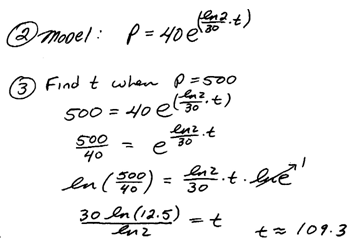 ② model: P = 40e^(ln2/30 · t)
③ Find t when P = 500
500 = 40 e^(ln2/30 · t)
500/40 = e^(ln2/30 · t)
ln(500/40) = ln2/30 · t · lne 1
30 ln(12.5)/ln2 = t t ≈ 109.3